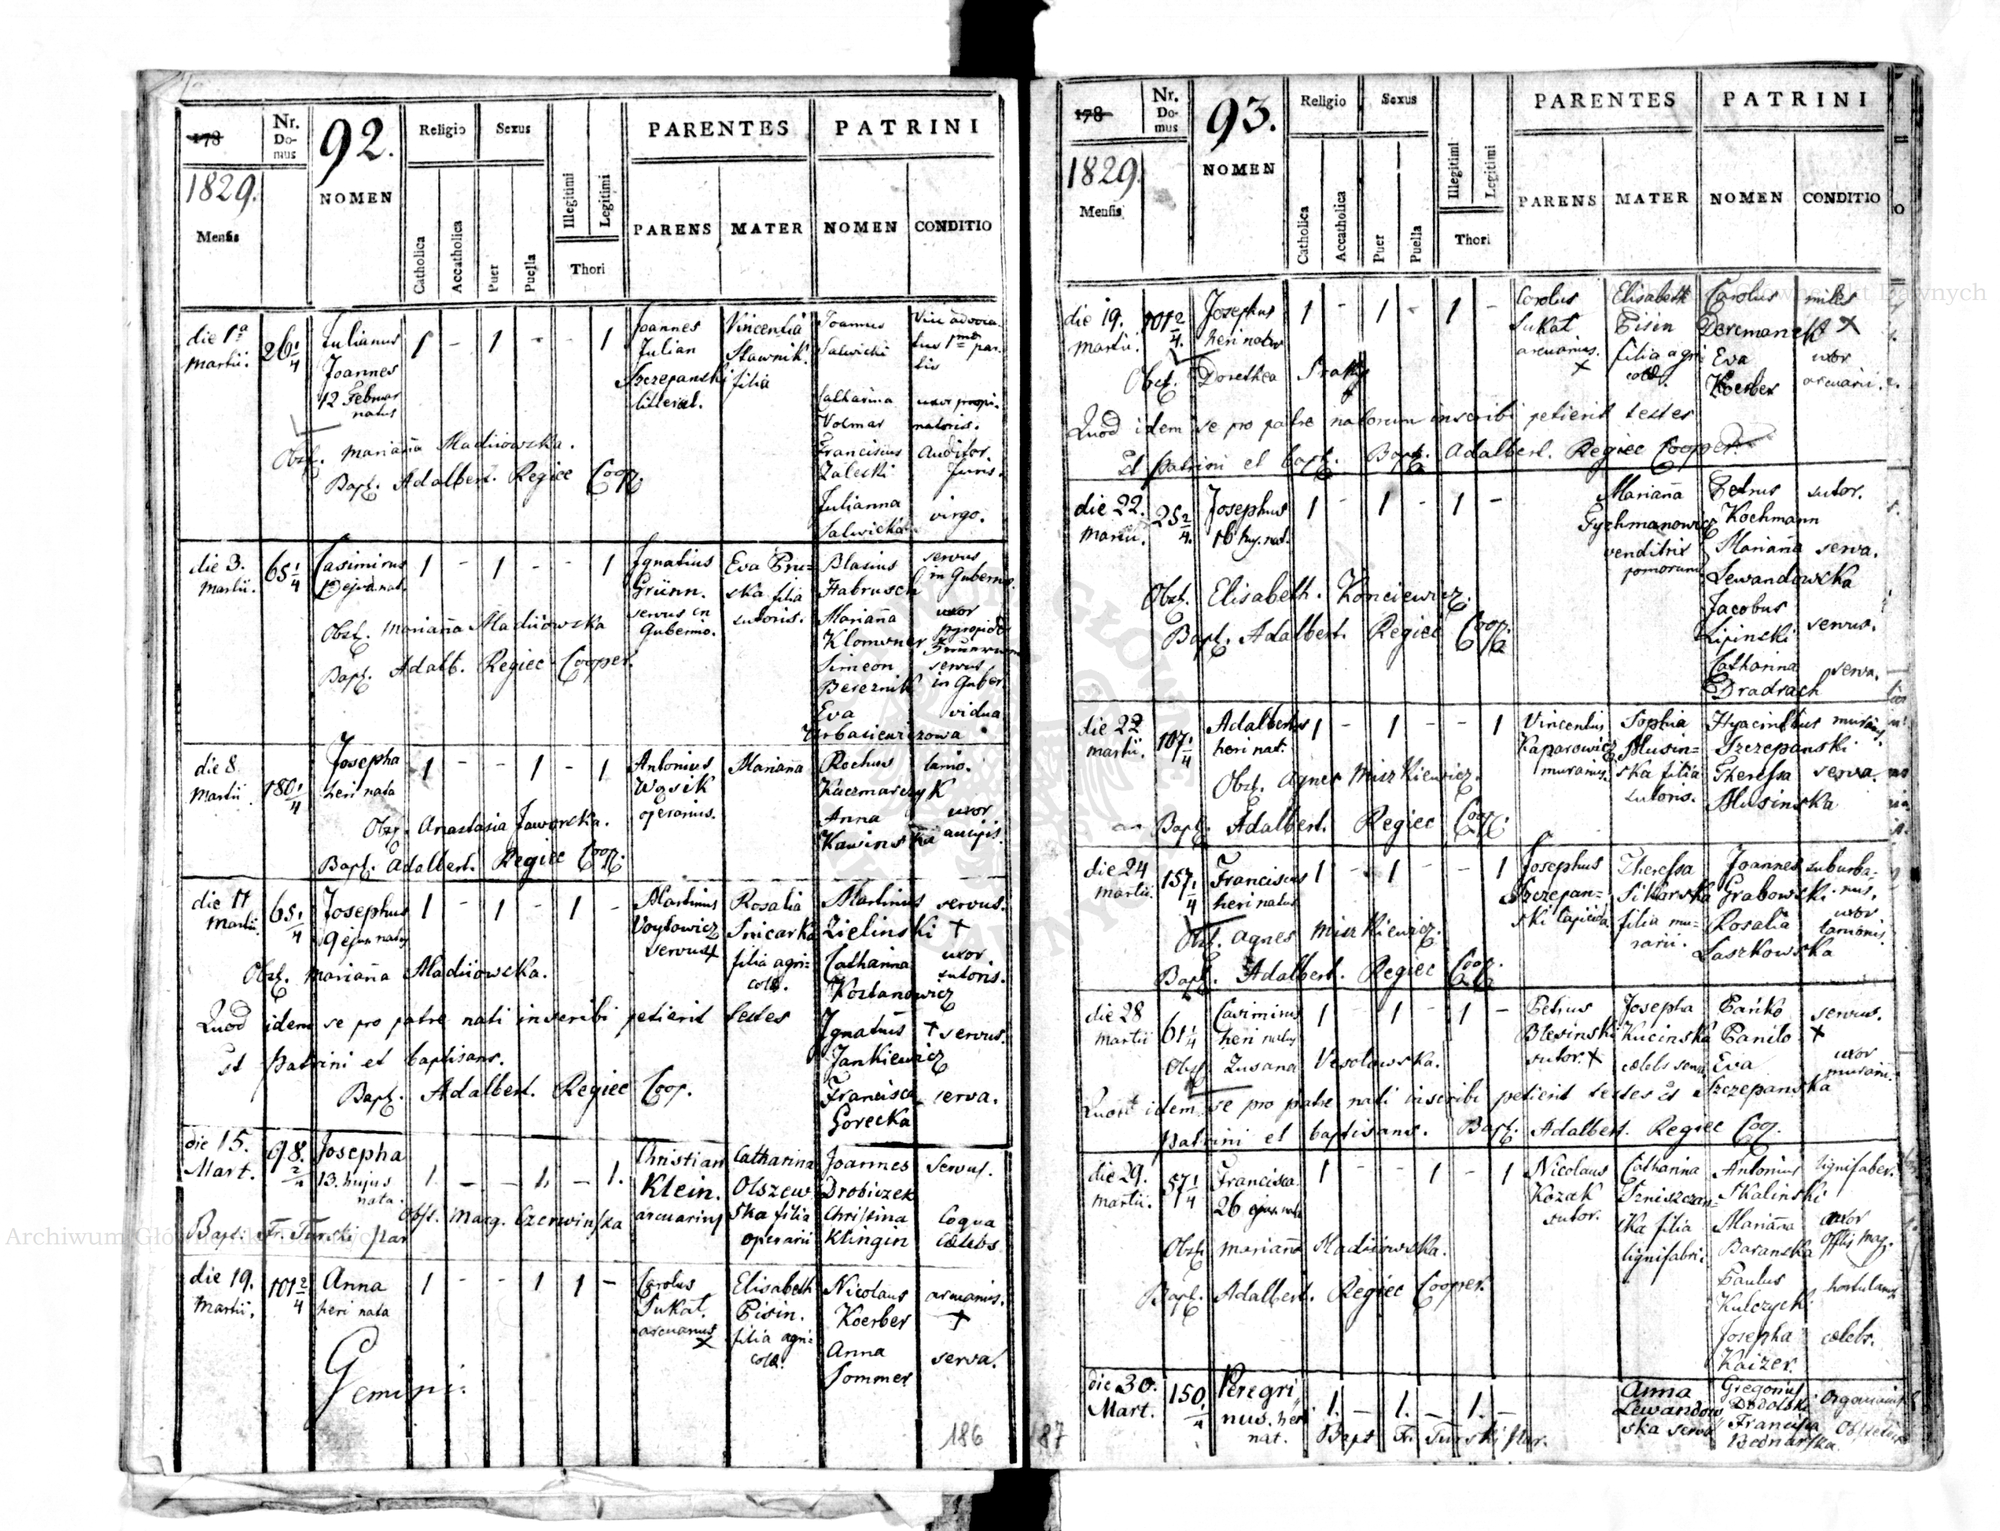 178
Nr. Do-mus
92.
Religio
Sexus
PARENTES
PATRINI
1829.
NOMEN
Mensis
Catholica
Accatholica
Puer
Puella
Illegitimi
Legitimi
Thori
PARENS
MATER
NOMEN
CONDITIO
die 1a Martii.
26 1/4
Julianus
Joannes
12 Februar
natus
1 - 1 - - 1
Joannes
Julian
Szczepanski
litterat.
Vincentia
Stawnik.
filia
Joannes
Salwicki
Catharina
Volmar
Franciscus
Zaleski
Auditor
Juris.
Julianna
Salwicka
virgo.
Obst. Marianna Madiiowska.
Bapt. Adalbert. Regiec Coop.
die 3. Martii.
65 1/4
Casimirus
1 - 1 - - 1
Ignatius
Grünn.
servus in
Gubernio.
Eva Pru-
ska filia
sutoris.
Blasius
Habrusch
servus
in Gubernio.
Marianna
Klomwner
uxor
Simeon
Bereznik
servus
in Guber.
Eva
Urbasiewiczowa
vidua
Obst. Marianna Madiiowska
Bapt. Adalb. Regiec Cooper.
die 8. Martii
180 1/4
Josepha
heri nata
1 - - 1 - 1
Antonius
Wąsik
operarius.
Marianna
Rochus
Kaczmarczyk
lanio.
Anna
Kawinska
uxor
aucupis.
Obst. Anastasia Jaworska.
Bapt. Adalbert. Regiec Coop.
die 11 Martii
65 1/4
Josephus
9 ejus natus
1 - 1 - 1 -
Martinus
Voytowicz
servus +
Rosalia
Snicarka
filia agri-
colae.
Martinus
Zielinski
servus.
+
Catharina
Kostanowicz
uxor
sutoris.
Ignatius
Jankiewicz
+ servus.
Francisca
Gorecka
serva.
Obst. Marianna Madiiowska.
Quod idem se pro patre nati inscribi petierit testes
st Patrini et baptisans.
Bapt. Adalbert. Regiec Coop.
die 15. Mart.
98. 2/4
Josepha
13. hujus
nata.
1. - - 1. - 1.
Christian
Klein.
arcuarius
Catharina
Olszew
ska filia
operarii
Joannes
Drobiczek
Servus.
Christina
Klingin
Coqua
caelebs
Obst. Marg. Czerwinska
Bapt. Fr. Turski par
die 19. Martii.
101 2/4
Anna
heri nata
1 - - 1 1 -
Carolus
Sukat.
arcuarius
+
Elisabeth
Pisin.
filia agri
colae.
Nicolaus
Koerber
arcuarius.
+
Anna
Sommer
serva.
Gemini.
186
178
Nr. Do-mus
93.
Religio
Sexus
PARENTES
PATRINI
1829.
NOMEN
Mensis
Catholica
Accatholica
Puer
Puella
Illegitimi
Legitimi
Thori
PARENS
MATER
NOMEN
CONDITIO
die 19. Martii.
101 2/4.
Josephus
heri natus
1 - 1 - 1 -
Carolus
Sukat
arcuarius.
+
Elisabeth
Pisin
filia agri
colae.
Carolus
miles
+
Eva
Koerber
uxor
arcuarii.
Obst. Dorothea
Quod idem se pro patre natorum inscribi petierit testes
st Patrini et bapt. Bapt. Adalbert. Regiec Cooper.
die 22. Martii.
25 2/4.
Josephus
16 huj. nat.
1 - 1 - 1 -
Marianna
Gychmanowicz
venditrix
pomorum
Petrus
Kochmann
sutor.
Marianna
Lewandowska
serva.
Jacobus
Lipinski
servus.
Catharina
Dradrach
serva.
Obst. Elisabeth. Konciewicz.
Bapt. Adalbert. Regiec Coop.
die 22 Martii.
107 1/4
Adalbertus
heri nat.
1 - 1 - - 1
Vincentius
Kaparowicz
murarius.
Sophia
Musin-
ska filia
sutoris.
Hyacinthus
Szczepanski
murarius.
Theressa
Musinska
serva
Obst. Agnes Miszkiewicz.
Bapt. Adalbert. Regiec Coop.
die 24 Martii.
157 1/4
Franciscus
heri natus
1 - 1 - - 1
Josephus
Szczepan-
ski lapicida
Theressa
Sikorska
filia mu-
rarii.
Joannes
Grabowski
suburba-
nus.
Rosalia
Laszkowska
uxor
lanionis.
Obst. Agnes Miszkiewicz.
Bapt. Adalbert. Regiec Coop.
die 28 Martii
61 1/4
Casimirus
heri natus
1 - 1 - 1 -
Petrus
Blesinski
sutor. +
Josepha
Kucinska
caelebs serva
Pańko
Panilo
servus.
+
Eva
Szczepanska
uxor
murarii.
Obst. Zusana Vesolowska.
Quod idem se pro patre nati inscribi petierit testes st
patrini et baptisans. Bapt. Adalbert. Regiec Coop.
die 29. Martii.
57 1/4
Francisca
26 ejus nata
1 - - 1 - 1
Nicolaus
Kozak
sutor.
Catharina
Uzniszczan-
ska filia
lignifabri.
Antonius
Skalinski
lignifaber.
Marianna
Baranska
uxor
Paulus
Kulczycki
hortulanus
Josepha
Kaizer
caelebs.
Obst. Marianna Madiiowska.
Bapt. Adalbert. Regiec Cooper.
die 30. Mart.
150 /4
Peregri
nus. heri
nat.
1. - 1. - 1. -
Anna
Lewandow
ska serva
Gregorius
Dodolski
Francisca
Bednarska.
Bapt Fr. Turski par.
187
Archiwum Główne Akt Dawnych